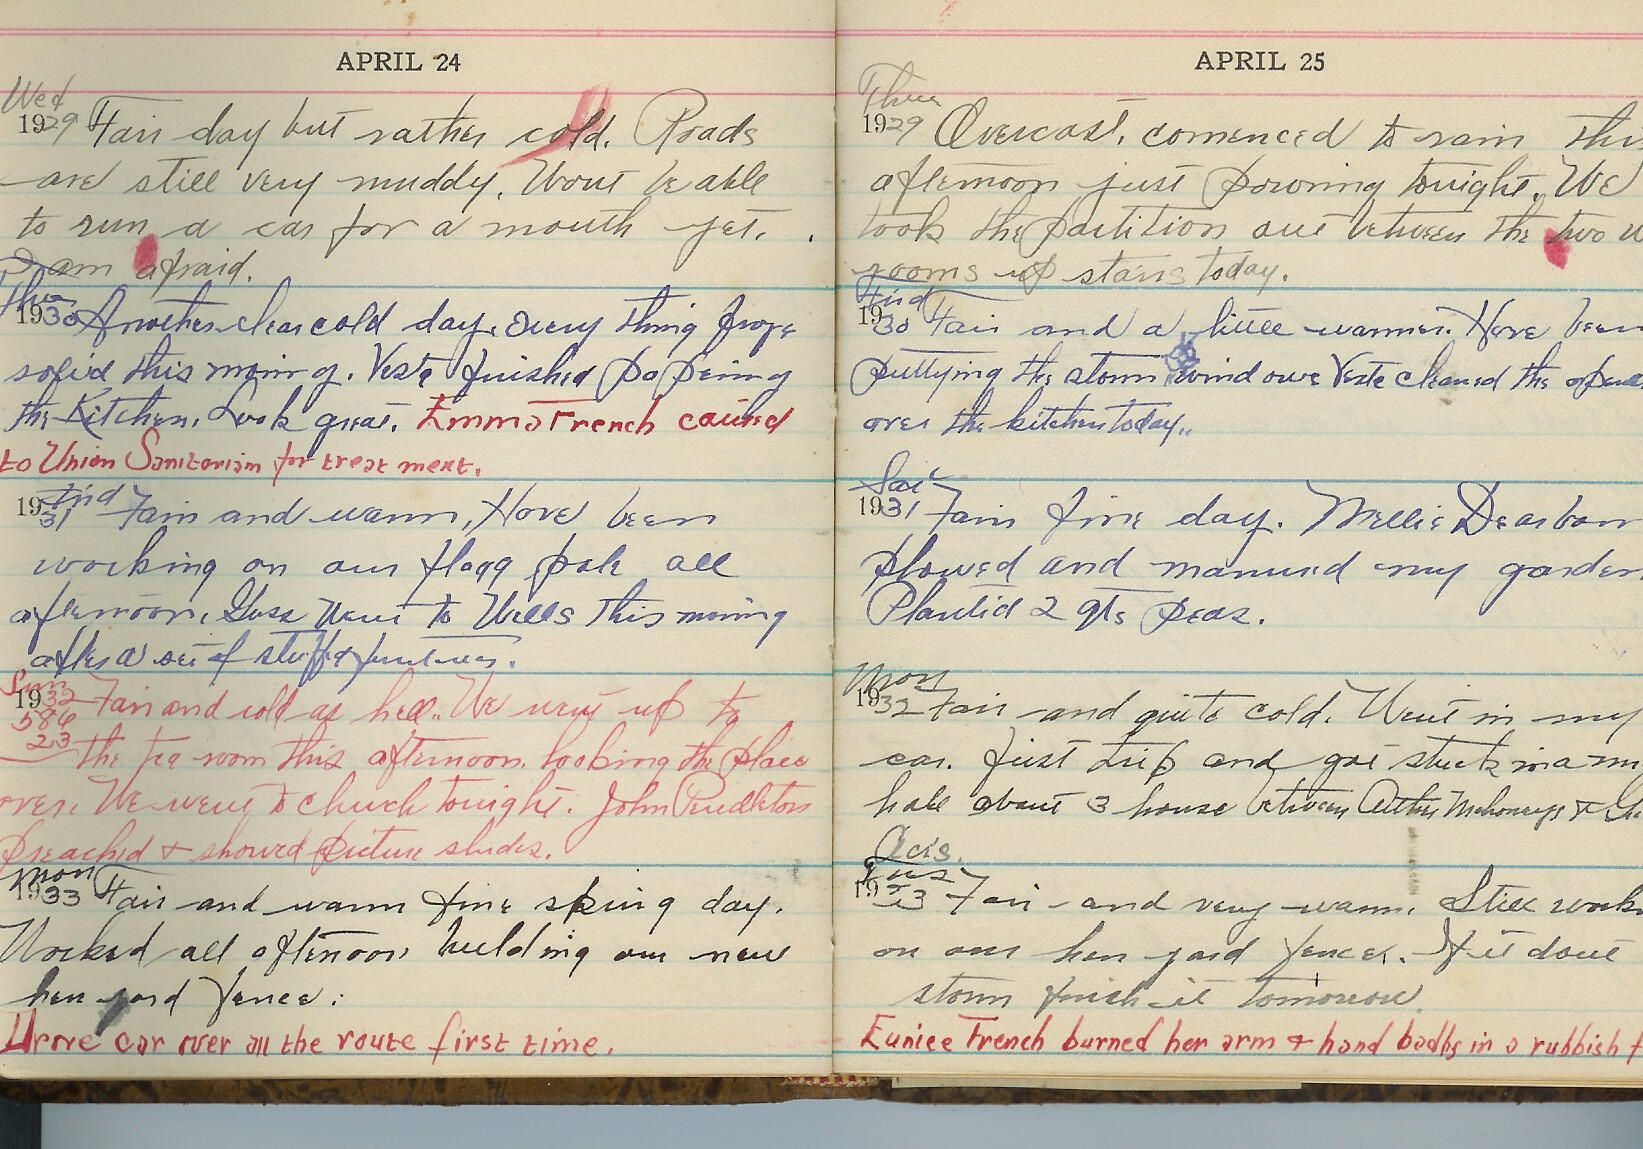 APRIL 24
Wed
1929 Fair day but rather cold. Roads
are still very muddy. Wont be able
to run a car for a month yet.
I am afraid.
Thur
1930 Another clear cold day. Every thing froze
solid this moring. Veste finished papering
the Kitchen. Look great. Emma French carried
to Union Sanitoriam for treatment.
Frid
1931 Fair and warm, Have been
working on our flagg pole all
afternoon. Guss went to Wells this morning
after a set of stuffed furniture.
Sun
1932 Fair and cold as hell.. We went up to
586
23
the tea room this afternoon. looking the place
over. We went to chuch tonight. John Pendleton
Preached + showed picture slides.
Mon
1933 Fair and warm fine spring day.
Worked all afternoon building our new
hen yard fence.
Drove car over all the route first time.
APRIL 25
Thur
1929 Overcast. comenced to rain this
afternoon just pouring tonight. We
took the partition out between the two
rooms up stairs today.
Frid
1930 Fair and a little warmer. Have been
puttying the storm windows Veste cleaned the
over the kitchen today..
Sat
1931 Fair fine day. Mellie Dearborn
plowed and manured my garden
Planted 2 qts peas.
Mon
1932 Fair and quite cold. Went in my
car. first trip and got stuck in a
hole about 3 house between Arthur Mahoneys +
Tues
1933 Fair and very warm. Still work
on our hen yard fence. If it dont
storm finish it tomorrow.
Eunice French burned her arm + hand badly in a rubbish